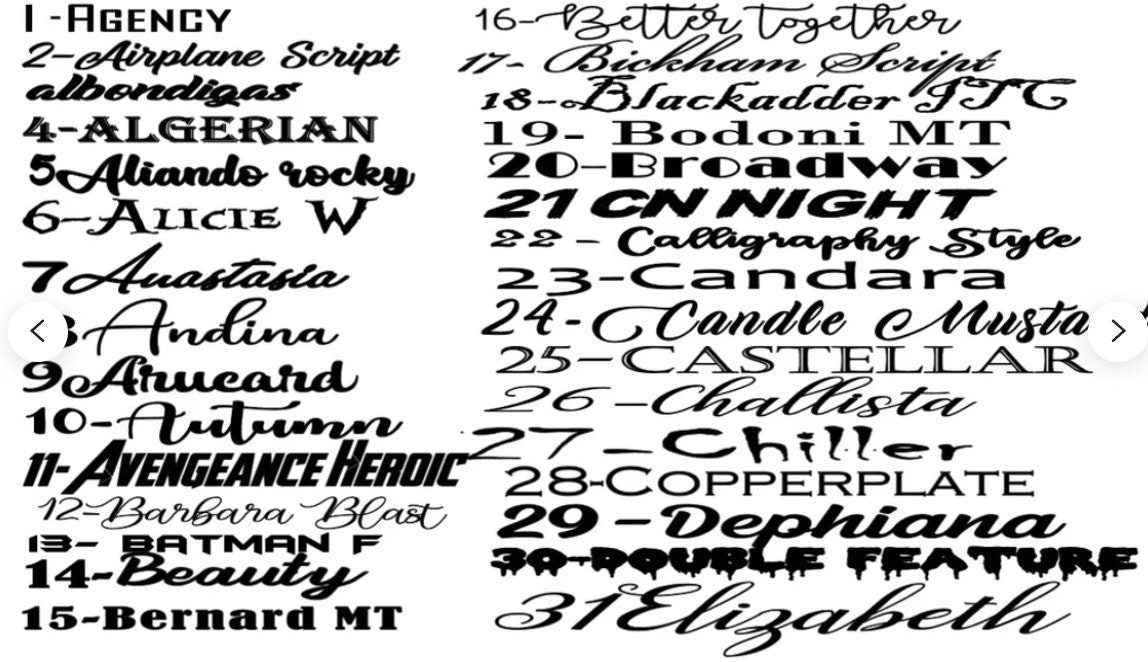 1-AGENCY
2-Airplane Script
albondigas
4-ALGERIAN
5 Aliando rocky
6-ALICIE W
7 Anastasia
8 Andina
9 Arucard
10-Autumn
11-AVENGEANCE HEROIC
12-Barbara Blast
13- BATMAN F
14-Beauty
15-Bernard MT
16-Better together
17- Bickham Script
18-Blackadder ITC
19- Bodoni MT
20-Broadway
21 CN NIGHT
22 - Calligraphy Style
23-Candara
24-Candle Musta
25-CASTELLAR
26 -Challista
27 - Chiller
28-COPPERPLATE
29 -Dephiana
30-DOUBLE FEATURE
31 Elizabeth